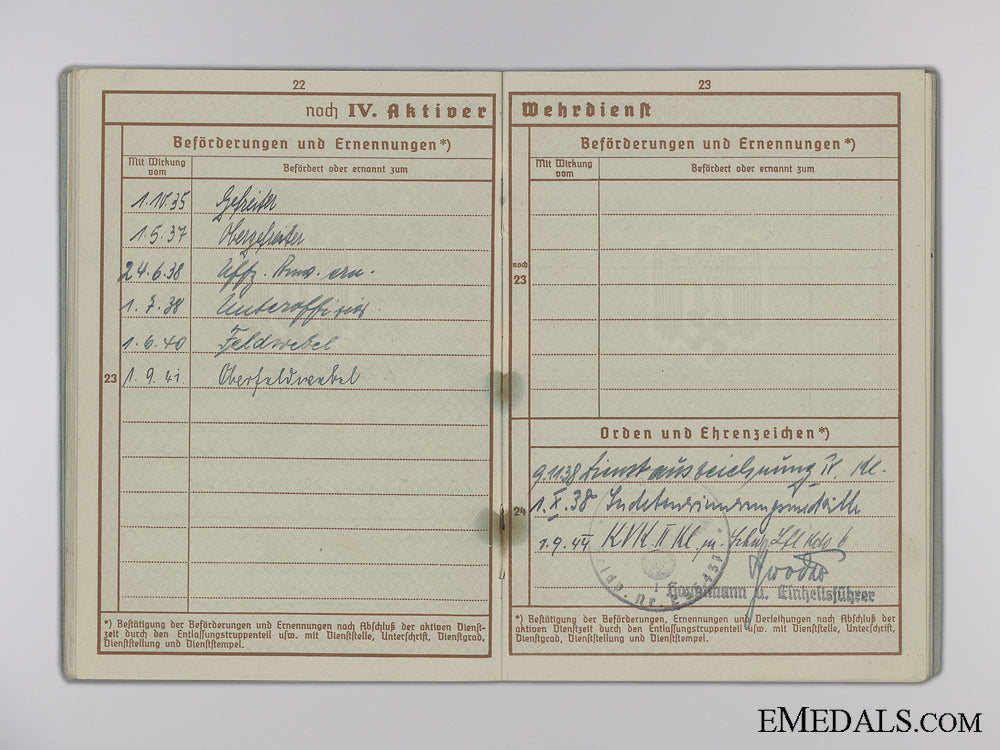 22
noch IV. Aktiver
Beförderungen und Ernennungen*)
Mit Wirkung vom
Befördert oder ernannt zum
1.10.35 Gefreiter
1.5.37 Obergefreiter
24.6.38 Uffz.
1.7.38 Unteroffizier
1.6.40 Feldwebel
23
1.9.41 Oberfeldwebel
*) Bestätigung der Beförderungen und Ernennungen nach Abschluß der aktiven Dienst-
zeit durch den Entlassungstruppenteil usw. mit Dienststelle, Unterschrift, Dienstgrad,
Dienststellung und Dienststempel.
23
Wehrdienst
Beförderungen und Ernennungen*)
Mit Wirkung vom
Befördert oder ernannt zum
noch
23
Orden und Ehrenzeichen*)
9.11.38 Dienstauszeichnung IV. Kl.
24
1.X.38
1.9.44 KVK II Kl m.
Hauptmann u. Einheitsführer
*) Bestätigung der Beförderungen, Ernennungen und Verleihungen nach Abschluß der
aktiven Dienstzeit durch den Entlassungstruppenteil usw. mit Dienststelle, Unterschrift,
Dienstgrad, Dienststellung und Dienststempel.
eMedals.com